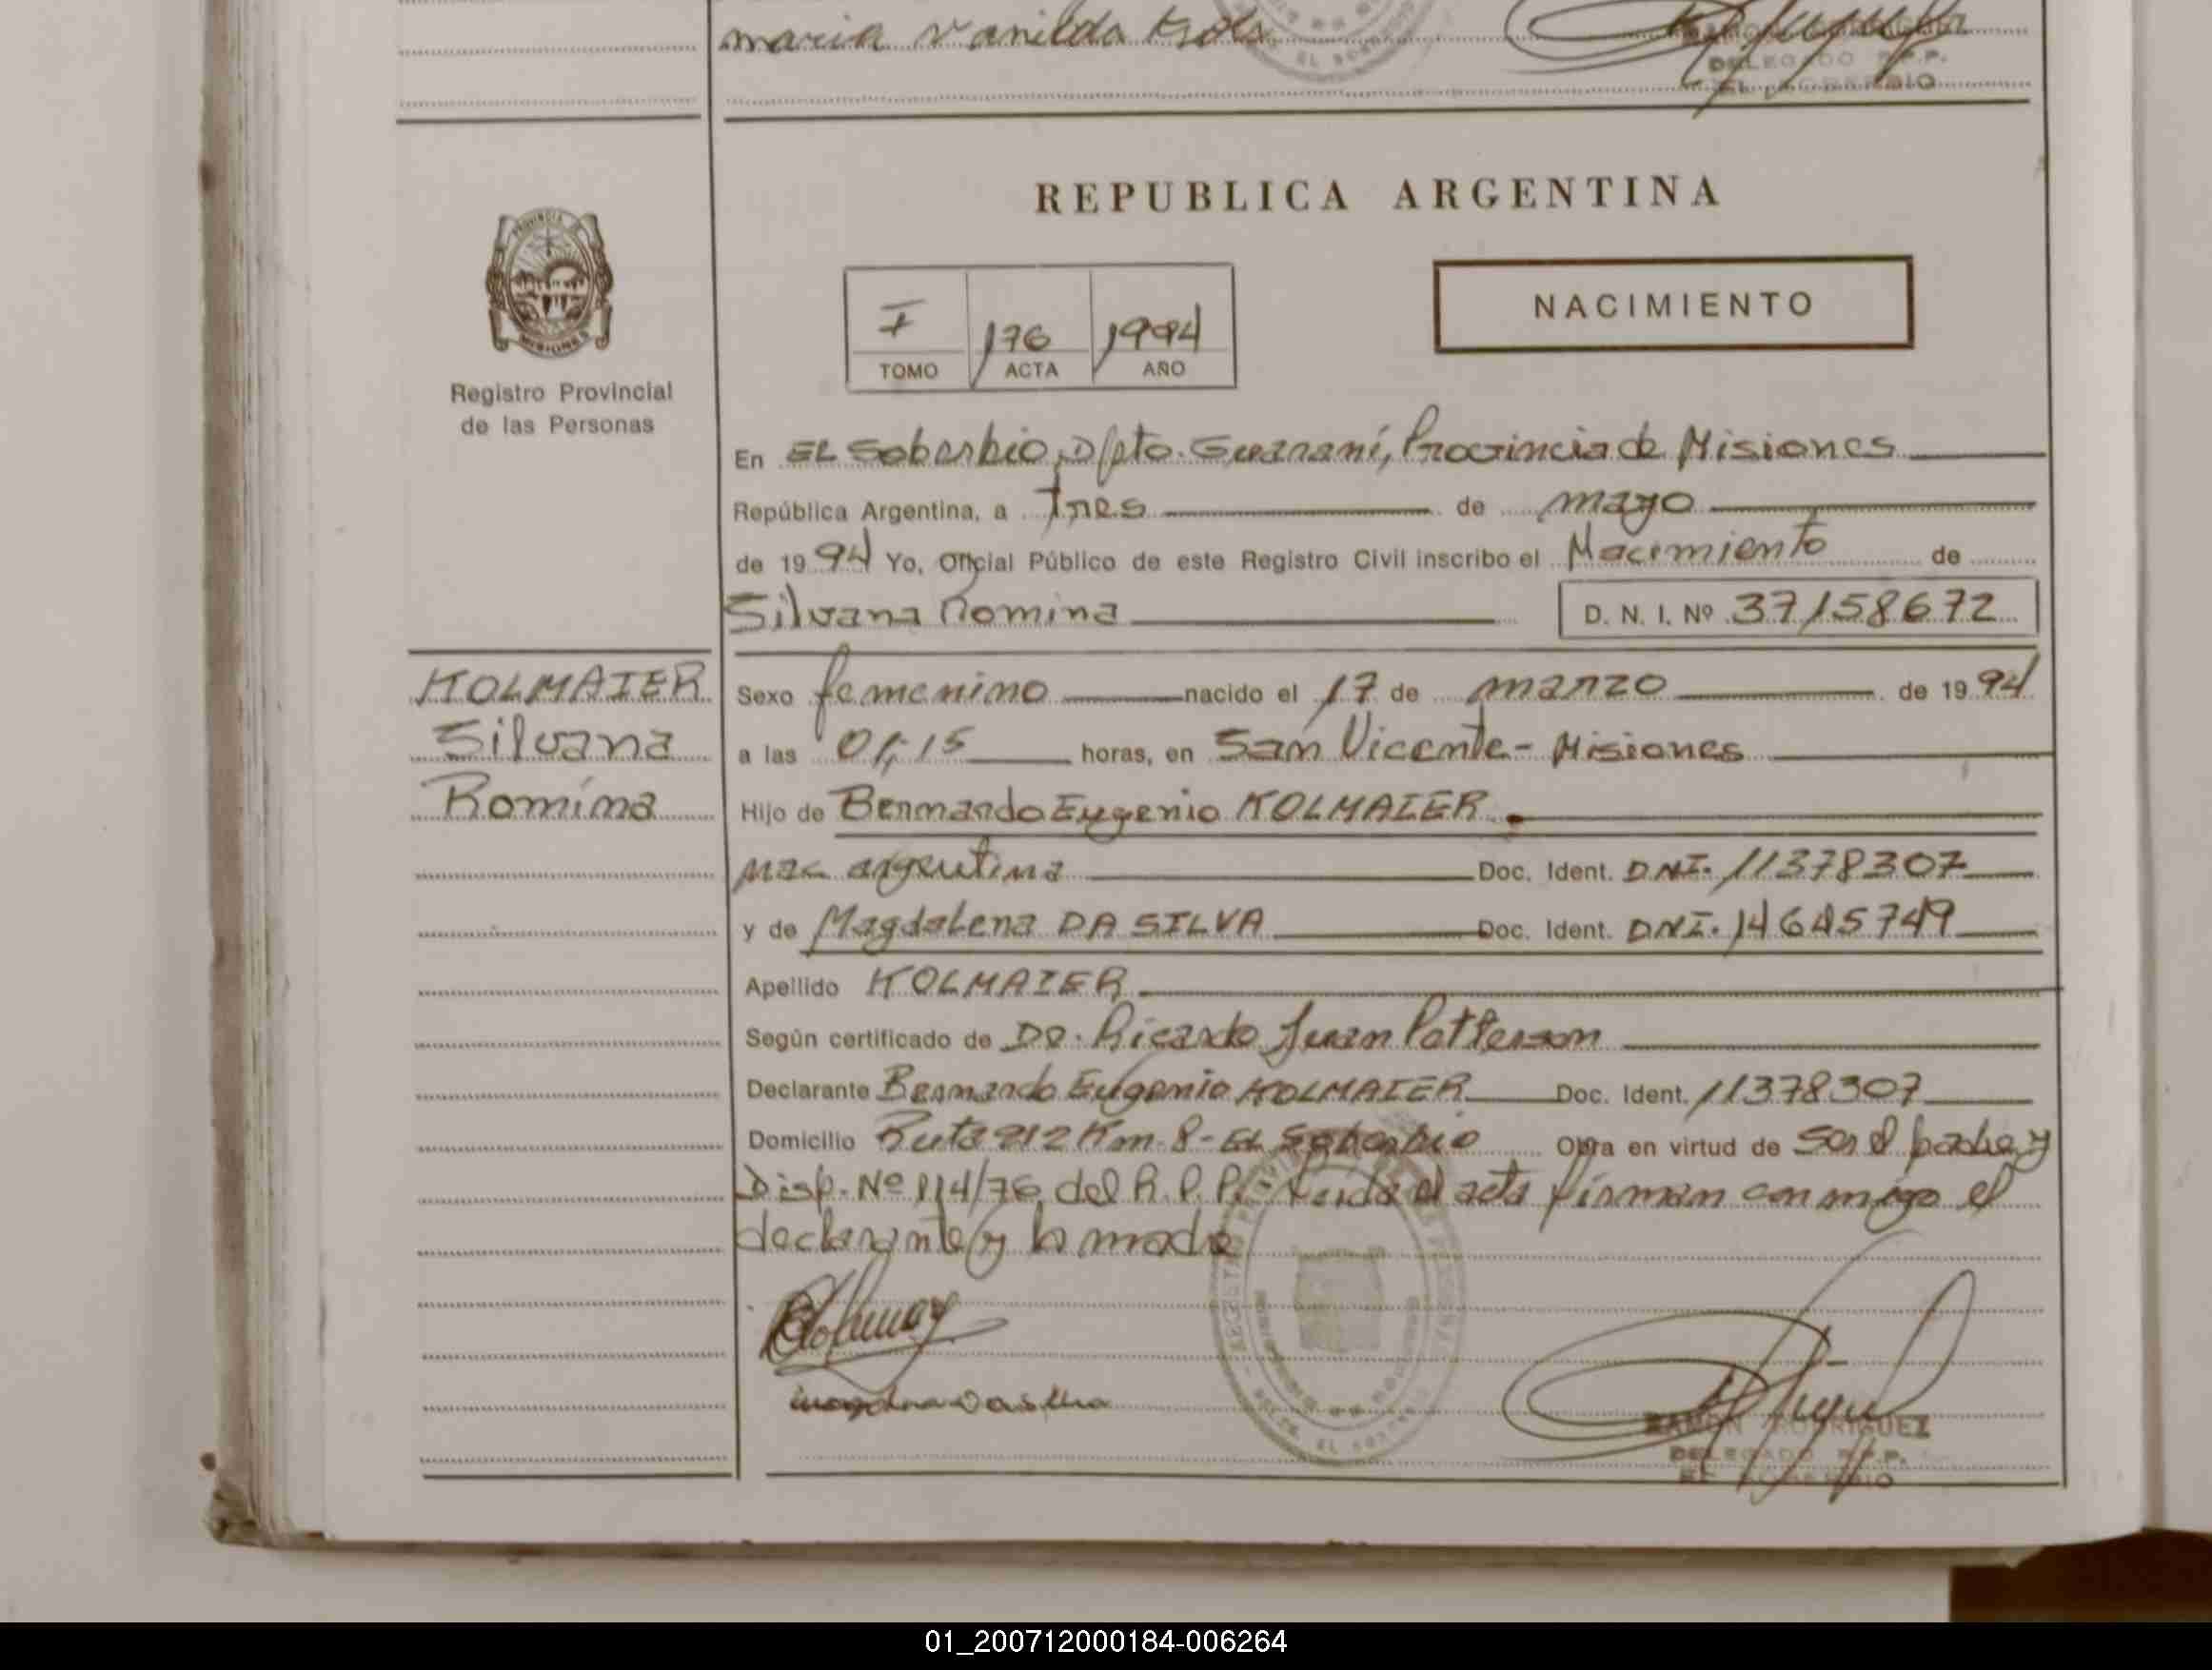 maria vanilda
EL SOBERBIO
DELEGADO R.P.P.
EL SOBERBIO
PROVINCIA
MISIONES
Registro Provincial
de las Personas
REPUBLICA ARGENTINA
NACIMIENTO
I 176 1994
TOMO ACTA AÑO
En EL Soberbio, D/pto. Guaraní, Provincia de Misiones
República Argentina, a Tres de mayo
de 1994 Yo, Oficial Público de este Registro Civil inscribo el Nacimiento de
Silvana Romina D. N. I. Nº 37158672
KOLMAIER
Silvana
Romina
Sexo femenino nacido el 17 de marzo de 1994
a las 01,15 horas, en San Vicente - Misiones
Hijo de Bernardo Eugenio KOLMAIER
nac argentina Doc. Ident. DNI. 11378307
y de Magdalena DA SILVA Doc. Ident. DNI. 14645749
Apellido KOLMAIER
Según certificado de Dr. Ricardo Juan Patterson
Declarante Bernardo Eugenio KOLMAIER Doc. Ident. 11378307
Domicilio Ruta 212 Km. 8 - EL Soberbio Obra en virtud de ser el padre y
Disp. Nº 114/76 del R.P.P. Leida el acta firman conmigo el
declarante y la madre
RAMON RODRIGUEZ
DELEGADO R.P.P.
EL SOBERBIO
01_200712000184-006264